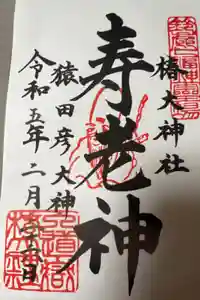 椿大神社
寿老神
猿田彦大神
令和五年二月